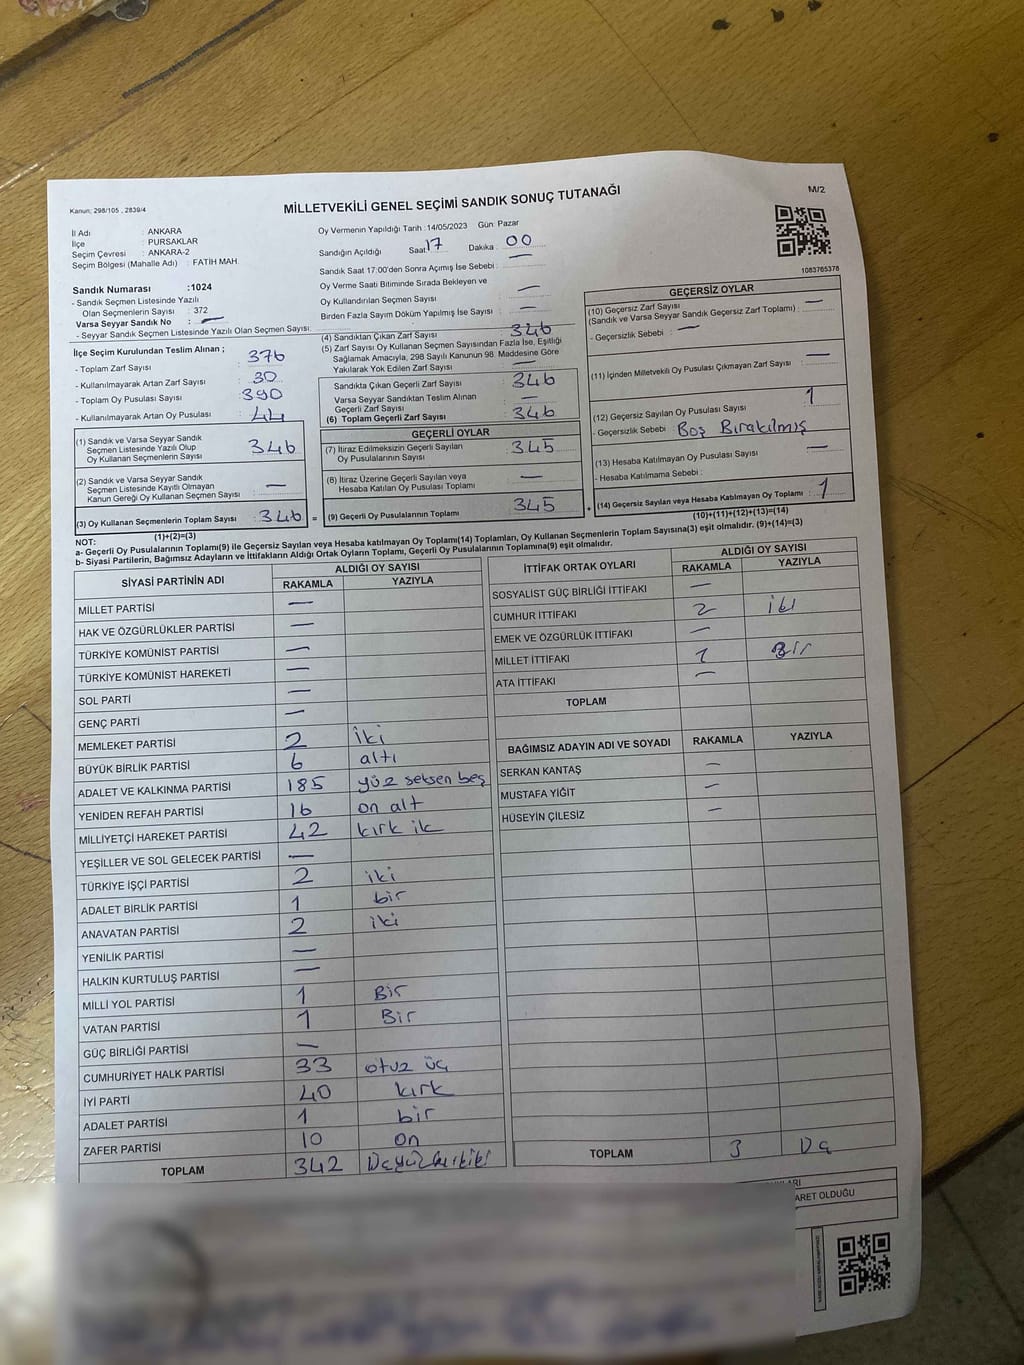 Kanun: 298/105 , 2839/4
MİLLETVEKİLİ GENEL SEÇİMİ SANDIK SONUÇ TUTANAĞI
M/2
İl Adı : ANKARA
İlçe : PURSAKLAR
Seçim Çevresi : ANKARA-2
Seçim Bölgesi (Mahalle Adı) : FATİH MAH.
Sandık Numarası :1024
- Sandık Seçmen Listesinde Yazılı
Olan Seçmenlerin Sayısı : 372
Varsa Seyyar Sandık No : —
- Seyyar Sandık Seçmen Listesinde Yazılı Olan Seçmen Sayısı:
Oy Vermenin Yapıldığı Tarih :14/05/2023 Gün: Pazar
Sandığın Açıldığı Saat 17 Dakika : 00
Sandık Saat 17:00'den Sonra Açımış İse Sebebi : —
Oy Verme Saati Bitiminde Sırada Bekleyen ve
Oy Kullandırılan Seçmen Sayısı —
Birden Fazla Sayım Döküm Yapılmış İse Sayısı : —
1083765378
İlçe Seçim Kurulundan Teslim Alınan ;
- Toplam Zarf Sayısı : 376
- Kullanılmayarak Artan Zarf Sayısı : 30
- Toplam Oy Pusulası Sayısı : 390
- Kullanılmayarak Artan Oy Pusulası : 44
(1) Sandık ve Varsa Seyyar Sandık
Seçmen Listesinde Yazılı Olup
Oy Kullanan Seçmenlerin Sayısı : 346
(2) Sandık ve Varsa Seyyar Sandık
Seçmen Listesinde Kayıtlı Olmayan
Kanun Gereği Oy Kullanan Seçmen Sayısı : —
(3) Oy Kullanan Seçmenlerin Toplam Sayısı : 346
(1)+(2)=(3)
(4) Sandıktan Çıkan Zarf Sayısı : 346
(5) Zarf Sayısı Oy Kullanan Seçmen Sayısından Fazla İse, Eşitliği
Sağlamak Amacıyla, 298 Sayılı Kanunun 98. Maddesine Göre
Yakılarak Yok Edilen Zarf Sayısı : —
Sandıkta Çıkan Geçerli Zarf Sayısı : 346
Varsa Seyyar Sandıktan Teslim Alınan
Geçerli Zarf Sayısı : —
(6) Toplam Geçerli Zarf Sayısı : 346
GEÇERLİ OYLAR
(7) İtiraz Edilmeksizin Geçerli Sayılan
Oy Pusulalarının Sayısı : 345
(8) İtiraz Üzerine Geçerli Sayılan veya
Hesaba Katılan Oy Pusulası Toplamı : —
= (9) Geçerli Oy Pusulalarının Toplamı : 345
GEÇERSİZ OYLAR
(10) Geçersiz Zarf Sayısı
(Sandık ve Varsa Seyyar Sandık Geçersiz Zarf Toplamı) : —
- Geçersizlik Sebebi : —
(11) İçinden Milletvekili Oy Pusulası Çıkmayan Zarf Sayısı : —
(12) Geçersiz Sayılan Oy Pusulası Sayısı : 1
- Geçersizlik Sebebi : Boş Bırakılmış
(13) Hesaba Katılmayan Oy Pusulası Sayısı : —
- Hesaba Katılmama Sebebi :
+ (14) Geçersiz Sayılan veya Hesaba Katılmayan Oy Toplamı : 1
(10)+(11)+(12)+(13)=(14)
NOT:
a- Geçerli Oy Pusulalarının Toplamı(9) ile Geçersiz Sayılan veya Hesaba Katılmayan Oy Toplamı(14) Toplamları, Oy Kullanan Seçmenlerin Toplam Sayısına(3) eşit olmalıdır. (9)+(14)=(3)
b- Siyasi Partilerin, Bağımsız Adayların ve İttifakların Aldığı Ortak Oyların Toplamı, Geçerli Oy Pusulalarının Toplamına(9) eşit olmalıdır.
SİYASİ PARTİNİN ADI ALDIĞI OY SAYISI
RAKAMLA YAZIYLA
MİLLET PARTİSİ —
HAK VE ÖZGÜRLÜKLER PARTİSİ —
TÜRKİYE KOMÜNİST PARTİSİ —
TÜRKİYE KOMÜNİST HAREKETİ —
SOL PARTİ —
GENÇ PARTİ —
MEMLEKET PARTİSİ 2 iki
BÜYÜK BİRLİK PARTİSİ 6 altı
ADALET VE KALKINMA PARTİSİ 185 yüz seksen beş
YENİDEN REFAH PARTİSİ 16 on altı
MİLLİYETÇİ HAREKET PARTİSİ 42 kırk ik
YEŞİLLER VE SOL GELECEK PARTİSİ —
TÜRKİYE İŞÇİ PARTİSİ 2 iki
ADALET BİRLİK PARTİSİ 1 bir
ANAVATAN PARTİSİ 2 iki
YENİLİK PARTİSİ —
HALKIN KURTULUŞ PARTİSİ —
MİLLİ YOL PARTİSİ 1 Bir
VATAN PARTİSİ 1 Bir
GÜÇ BİRLİĞİ PARTİSİ —
CUMHURİYET HALK PARTİSİ 33 otuz üç
İYİ PARTİ 40 kırk
ADALET PARTİSİ 1 bir
ZAFER PARTİSİ 10 on
TOPLAM 342
İTTİFAK ORTAK OYLARI ALDIĞI OY SAYISI
RAKAMLA YAZIYLA
SOSYALİST GÜÇ BİRLİĞİ İTTİFAKI —
CUMHUR İTTİFAKI 2 iki
EMEK VE ÖZGÜRLÜK İTTİFAKI —
MİLLET İTTİFAKI 1 Bir
ATA İTTİFAKI —
TOPLAM
BAĞIMSIZ ADAYIN ADI VE SOYADI RAKAMLA YAZIYLA
SERKAN KANTAŞ —
MUSTAFA YİĞİT —
HÜSEYİN ÇİLESİZ —
TOPLAM 3 Üç
ARET OLDUĞU